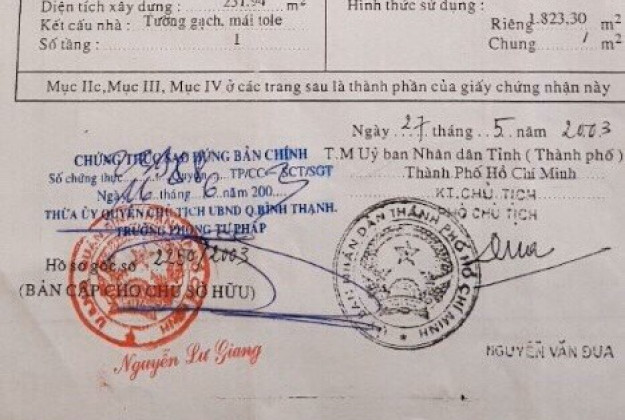 Diện tích xây dựng : 251.94 m²
Kết cấu nhà : Tường gạch, mái tole
Số tầng : 1
Hình thức sử dụng :
Riêng 1.823,30 m²
Chung / m²
Mục IIc, Mục III, Mục IV ở các trang sau là thành phần của giấy chứng nhận này
Ngày 27 tháng 5 năm 2003
T.M Uỷ ban Nhân dân Tỉnh ( Thành phố )
Thành Phố Hồ Chí Minh
KT. CHỦ TỊCH
PHÓ CHỦ TỊCH
BAN NHÂN DÂN THÀNH PHỐ HỒ CHÍ MINH
NGUYỄN VĂN ĐUA
CHỨNG THỰC SAO ĐÚNG BẢN CHÍNH
Số chứng thực Quyển TP/CC- SCT/SGT
Ngày 16 tháng 6 năm 200
THỪA ỦY QUYỀN CHỦ TỊCH UBND Q.BÌNH THẠNH.
TRƯỞNG PHÒNG TƯ PHÁP
Hồ sơ gốc số 2250/2003
(BẢN CẤP CHO CHỦ SỞ HỮU)
Nguyễn Lư Giang